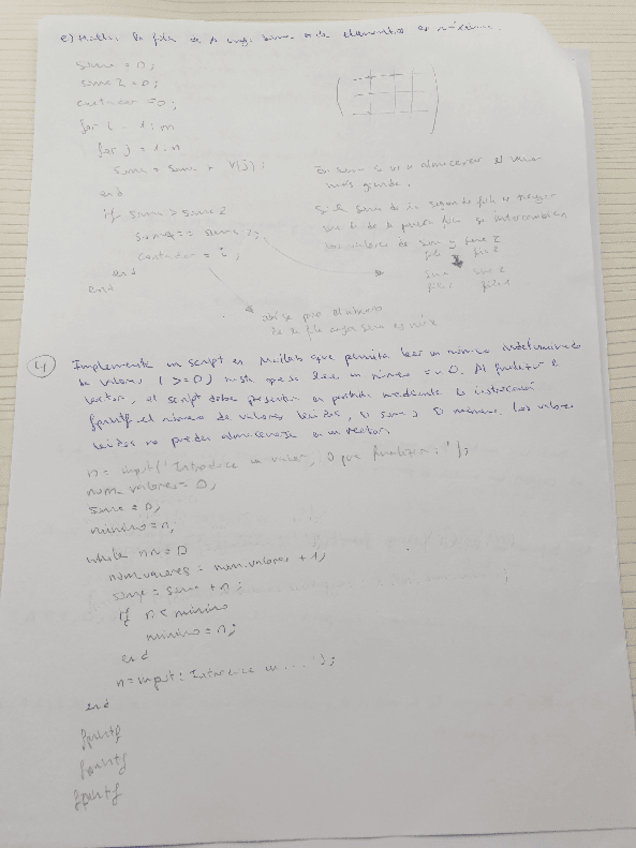 e) Hallar la fila de la cuya suma de elementos es máxima.
suma = 0;
suma2 = 0;
contador = 0;
for i = 1:m
for j = 1:n
suma = suma + V(j);
end
if suma > suma2
suma == suma2;
contador = i;
end
end
En suma se va a almacenar el valor
más grande.
Si la suma de la segunda fila es mayor
que la de la primera fila se intercambian
los valores de suma y suma 2
fila fila 2
suma suma 2
fila fila
el número
de la fila cuya suma es máx
4) Implemente un script en Matlab que permita leer un número indeterminado
de valores (>=0) hasta que se lea un número == 0. Al finalizar la
lectura, el script debe presentar en pantalla mediante la instrucción
fprintf el número de valores leídos, su suma y el mínimo. Los valores
leídos no pueden almacenarse en un vector.
n = input('Introduce un valor, 0 para finalizar: ');
num_valores = 0;
suma = 0;
minimo = n;
while n ~= 0
num_valores = num_valores + 1;
suma = suma + n;
if n < minimo
minimo = n;
end
n = input: Introduce un .... ');
end
fprintf
fprintf
fprintf